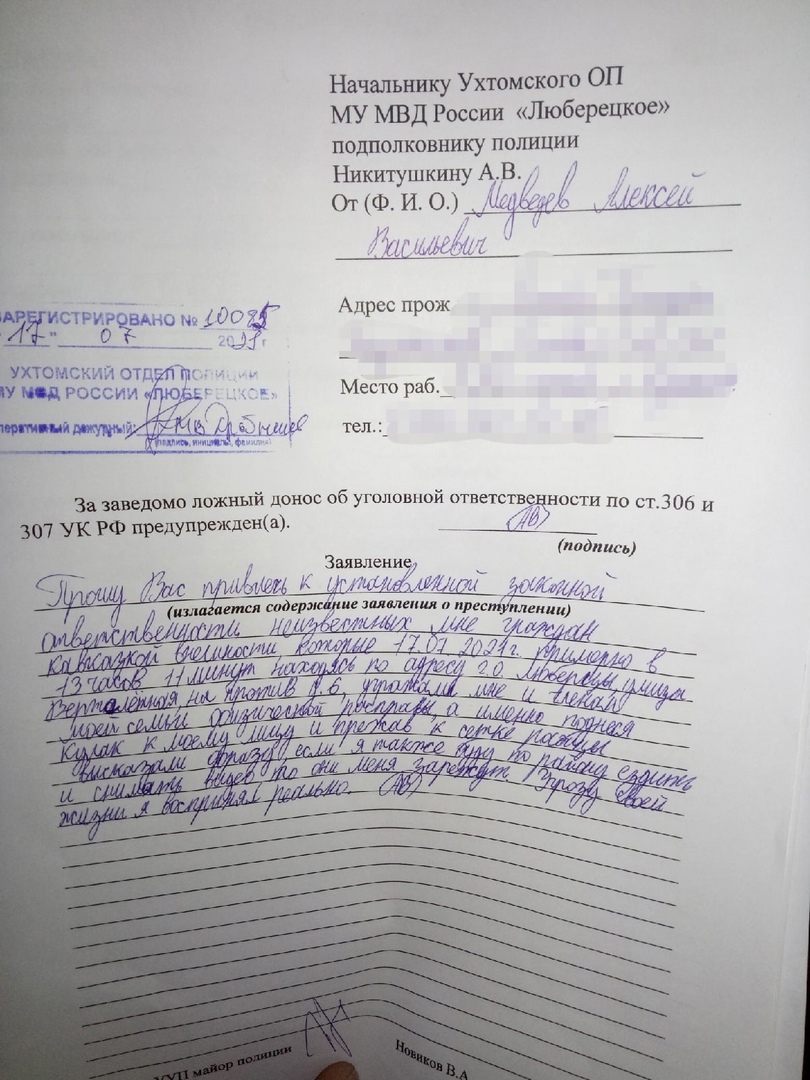 Начальнику Ухтомского ОП
МУ МВД России «Люберецкое»
подполковнику полиции
Никитушкину А.В.
От (Ф. И. О.) Медведев Алексей
Васильевич
Адрес прож
Место раб.
тел.:
ЗАРЕГИСТРИРОВАНО № 10085
17 " 07 20 г
УХТОМСКИЙ ОТДЕЛ ПОЛИЦИИ
МУ МВД РОССИИ «ЛЮБЕРЕЦКОЕ»
оперативный дежурный:
(подпись, инициалы, фамилия)
За заведомо ложный донос об уголовной ответственности по ст.306 и
307 УК РФ предупрежден(а).
(подпись)
Заявление
Прошу Вас привлечь к установленной законной
(излагается содержание заявления о преступлении)
ответственности неизвестных мне граждан
Кавказкой внешности которые 17.07.2021г. примерно в
13 часов 11 минут находясь по адресу г.о. Люберцы, улица
на против д.6, угражали мне и членам
моей семьи физической расправы, а именно поднеся
кулак к моему лицу и прежав к сетке рабицы
высказали фразу если я также буду по району ездить
и снимать видео то они меня зарежут. Угрозу своей
жизни я воспринял реально.
УУП майор полиции
Новиков В.А